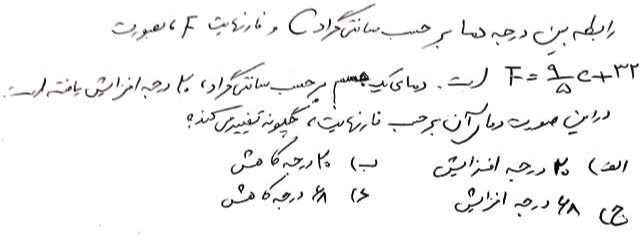 رابطه بین درجه دما بر حسب سانتی‌گراد C و فارنهایت F، بصورت
F = ۹/۵ c + ۳۲ است. دمای یک جسم بر حسب سانتی‌گراد، ۲۰ درجه افزایش یافته است.
در این صورت دمای آن بر حسب فارنهایت، چگونه تغییر می‌کند؟
الف) ۲۰ درجه افزایش ب) ۲۰ درجه کاهش
ج) ۶۸ درجه افزایش د) ۶۸ درجه کاهش